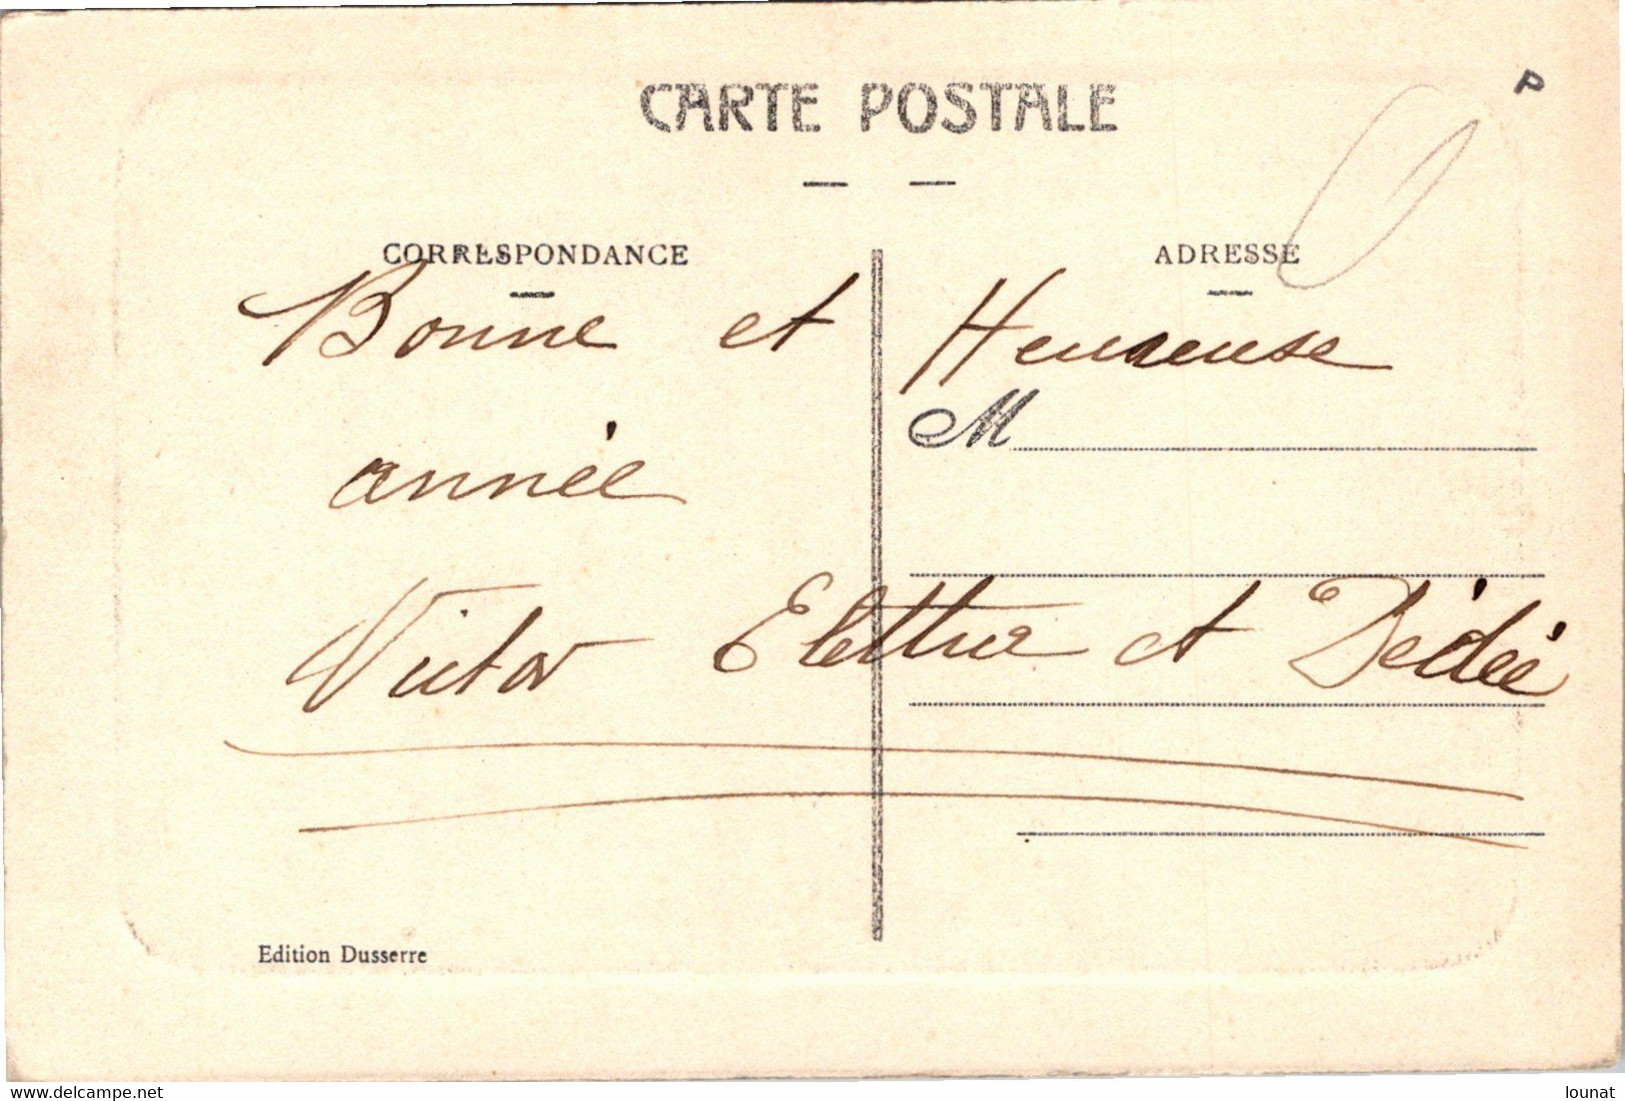 CARTE POSTALE
P
CORRESPONDANCE
ADRESSE
Bonne et Heureuse
M
année
Victor et Dédée
Edition Dusserre
www.delcampe.net
lounat